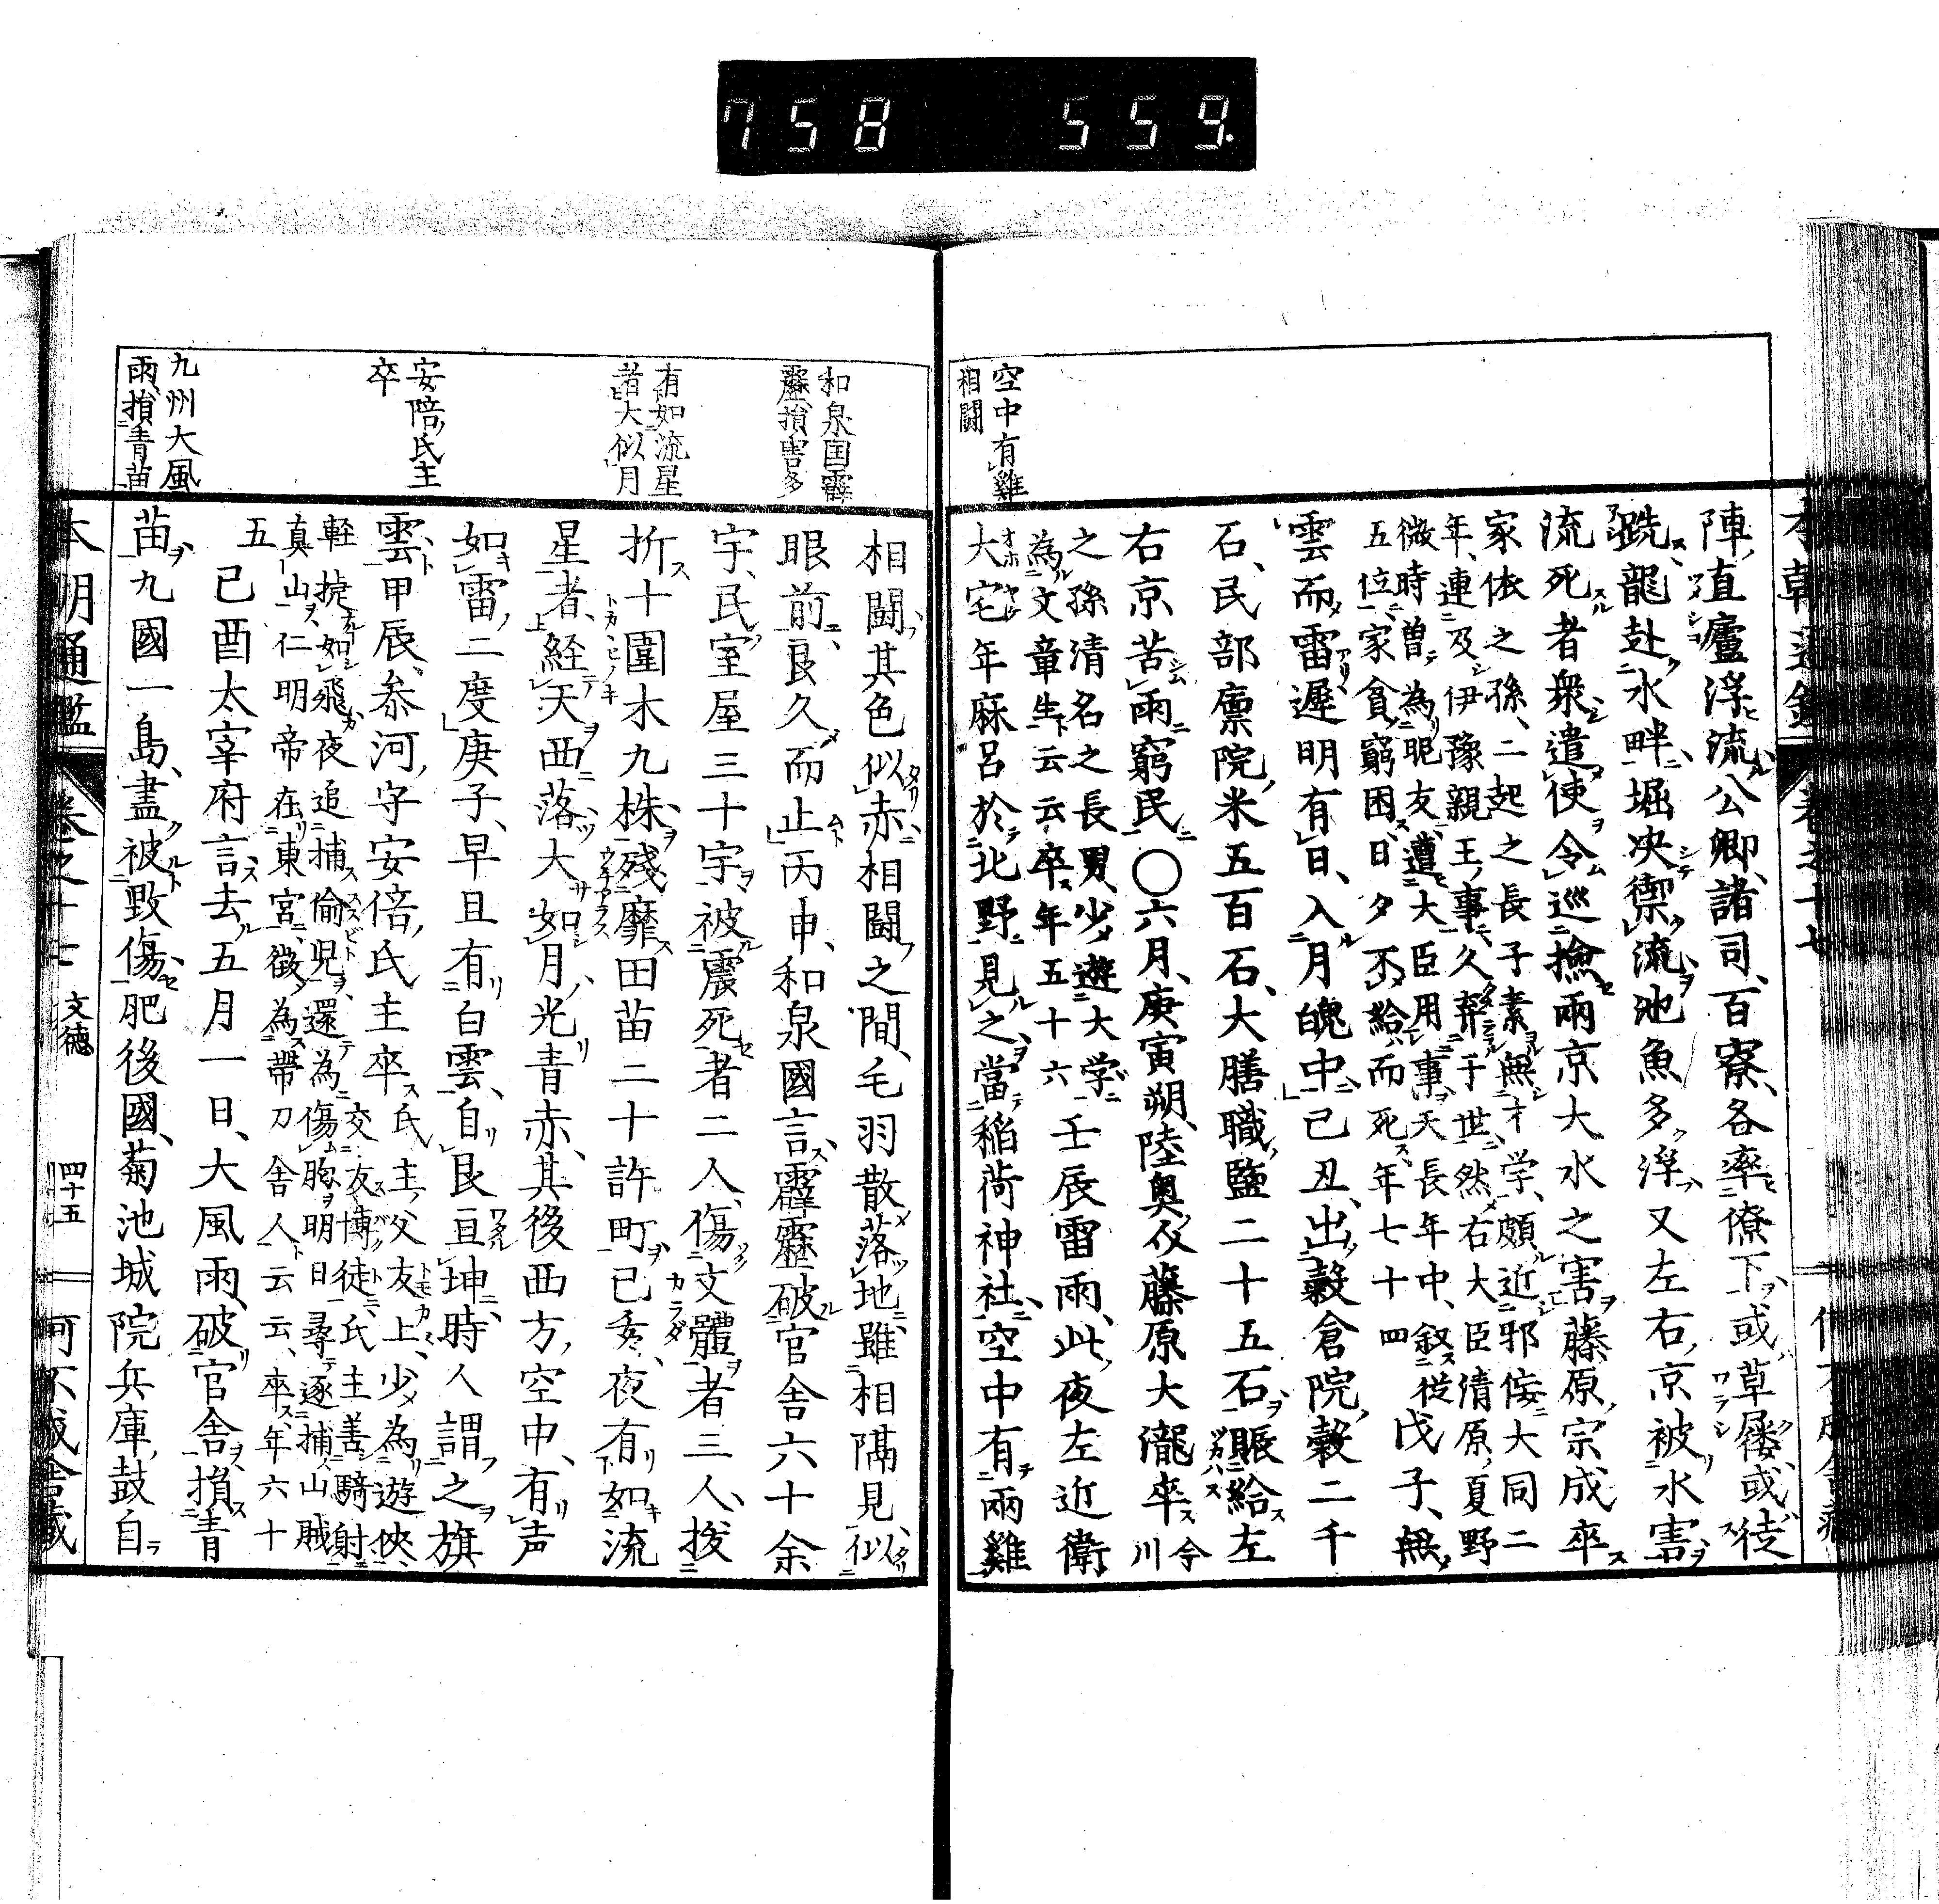 758 559.
陣直廬浮流公卿諸司百寮各率僚下或草屨或徒
跣龍赴水畔堀決禦流池魚多浮又左右京被水害
流死者衆遣使令巡撿兩京大水之害藤原宗成卒
家依之孫二起之長子素無才学頗近邪侫大同二
年連及伊豫親王事久棄于世然右大臣清原夏野
微時曽為昵友遭大臣用事天長年中叙従
五位家貧窮困日夕不給而死年七十四
戊子無
雲而雷遅明有日入月魄中己丑出穀倉院穀二千
石民部廪院米五百石大膳職鹽二十五石賑給左
右京苦雨窮民〇六月庚寅朔陸奥介藤原大瀧卒今川
之孫清名之長男少遊大学
為文章生云云卒年五十六
壬辰雷雨此夜左近衛
大宅年麻呂於北野見之當稲荷神社空中有兩雞
空中有雞
相闘
相闘其色似赤相闘之間毛羽散落地雖相隔見似
眼前良久而止丙申和泉國言霹靂破官舎六十余
宇民室屋三十宇被震死者二人傷文體者三人拔
折十圍木九株残靡田苗二十許町己亥夜有如流
星者経天西落大如月光青赤其後西方空中有声
如雷二度庚子早旦有白雲自艮亘坤時人謂之旗
雲甲辰叅河守安倍氏主卒氏主父友上少為遊侠
軽捷如飛夜追捕偷児還為傷胸明日尋逐捕山賊
交友博徒氏主善騎射
真山仁明帝在東宮徴為帶刀舎人云云卒年六十
五
己酉太宰府言去五月一日大風雨破官舎損青
苗九國一島盡被毀傷肥後國菊池城院兵庫鼓自
和泉国霹
靂損害多
有如流星
者大似月
安陪氏主
卒
九州大風
雨損青苗
本朝通鑑 卷之十七 文德 四十五